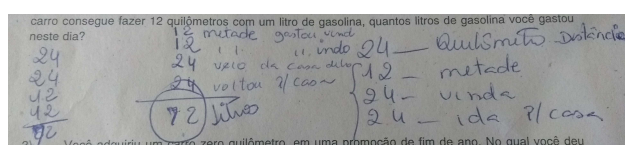 carro consegue fazer 12 quilômetros com um litro de gasolina, quantos litros de gasolina você gastou
neste dia?
24
24
12
12
72
12 metade gastou vind
12 indo
24 veio da casa dele
24 voltou p/ casa
72 litros
24 — Quilômetro Distância
12 — metade
24 — vinda
24 — ida p/ casa
2) Você adquiriu um carro zero quilômetro, em uma promoção de fim de ano. No qual você deu